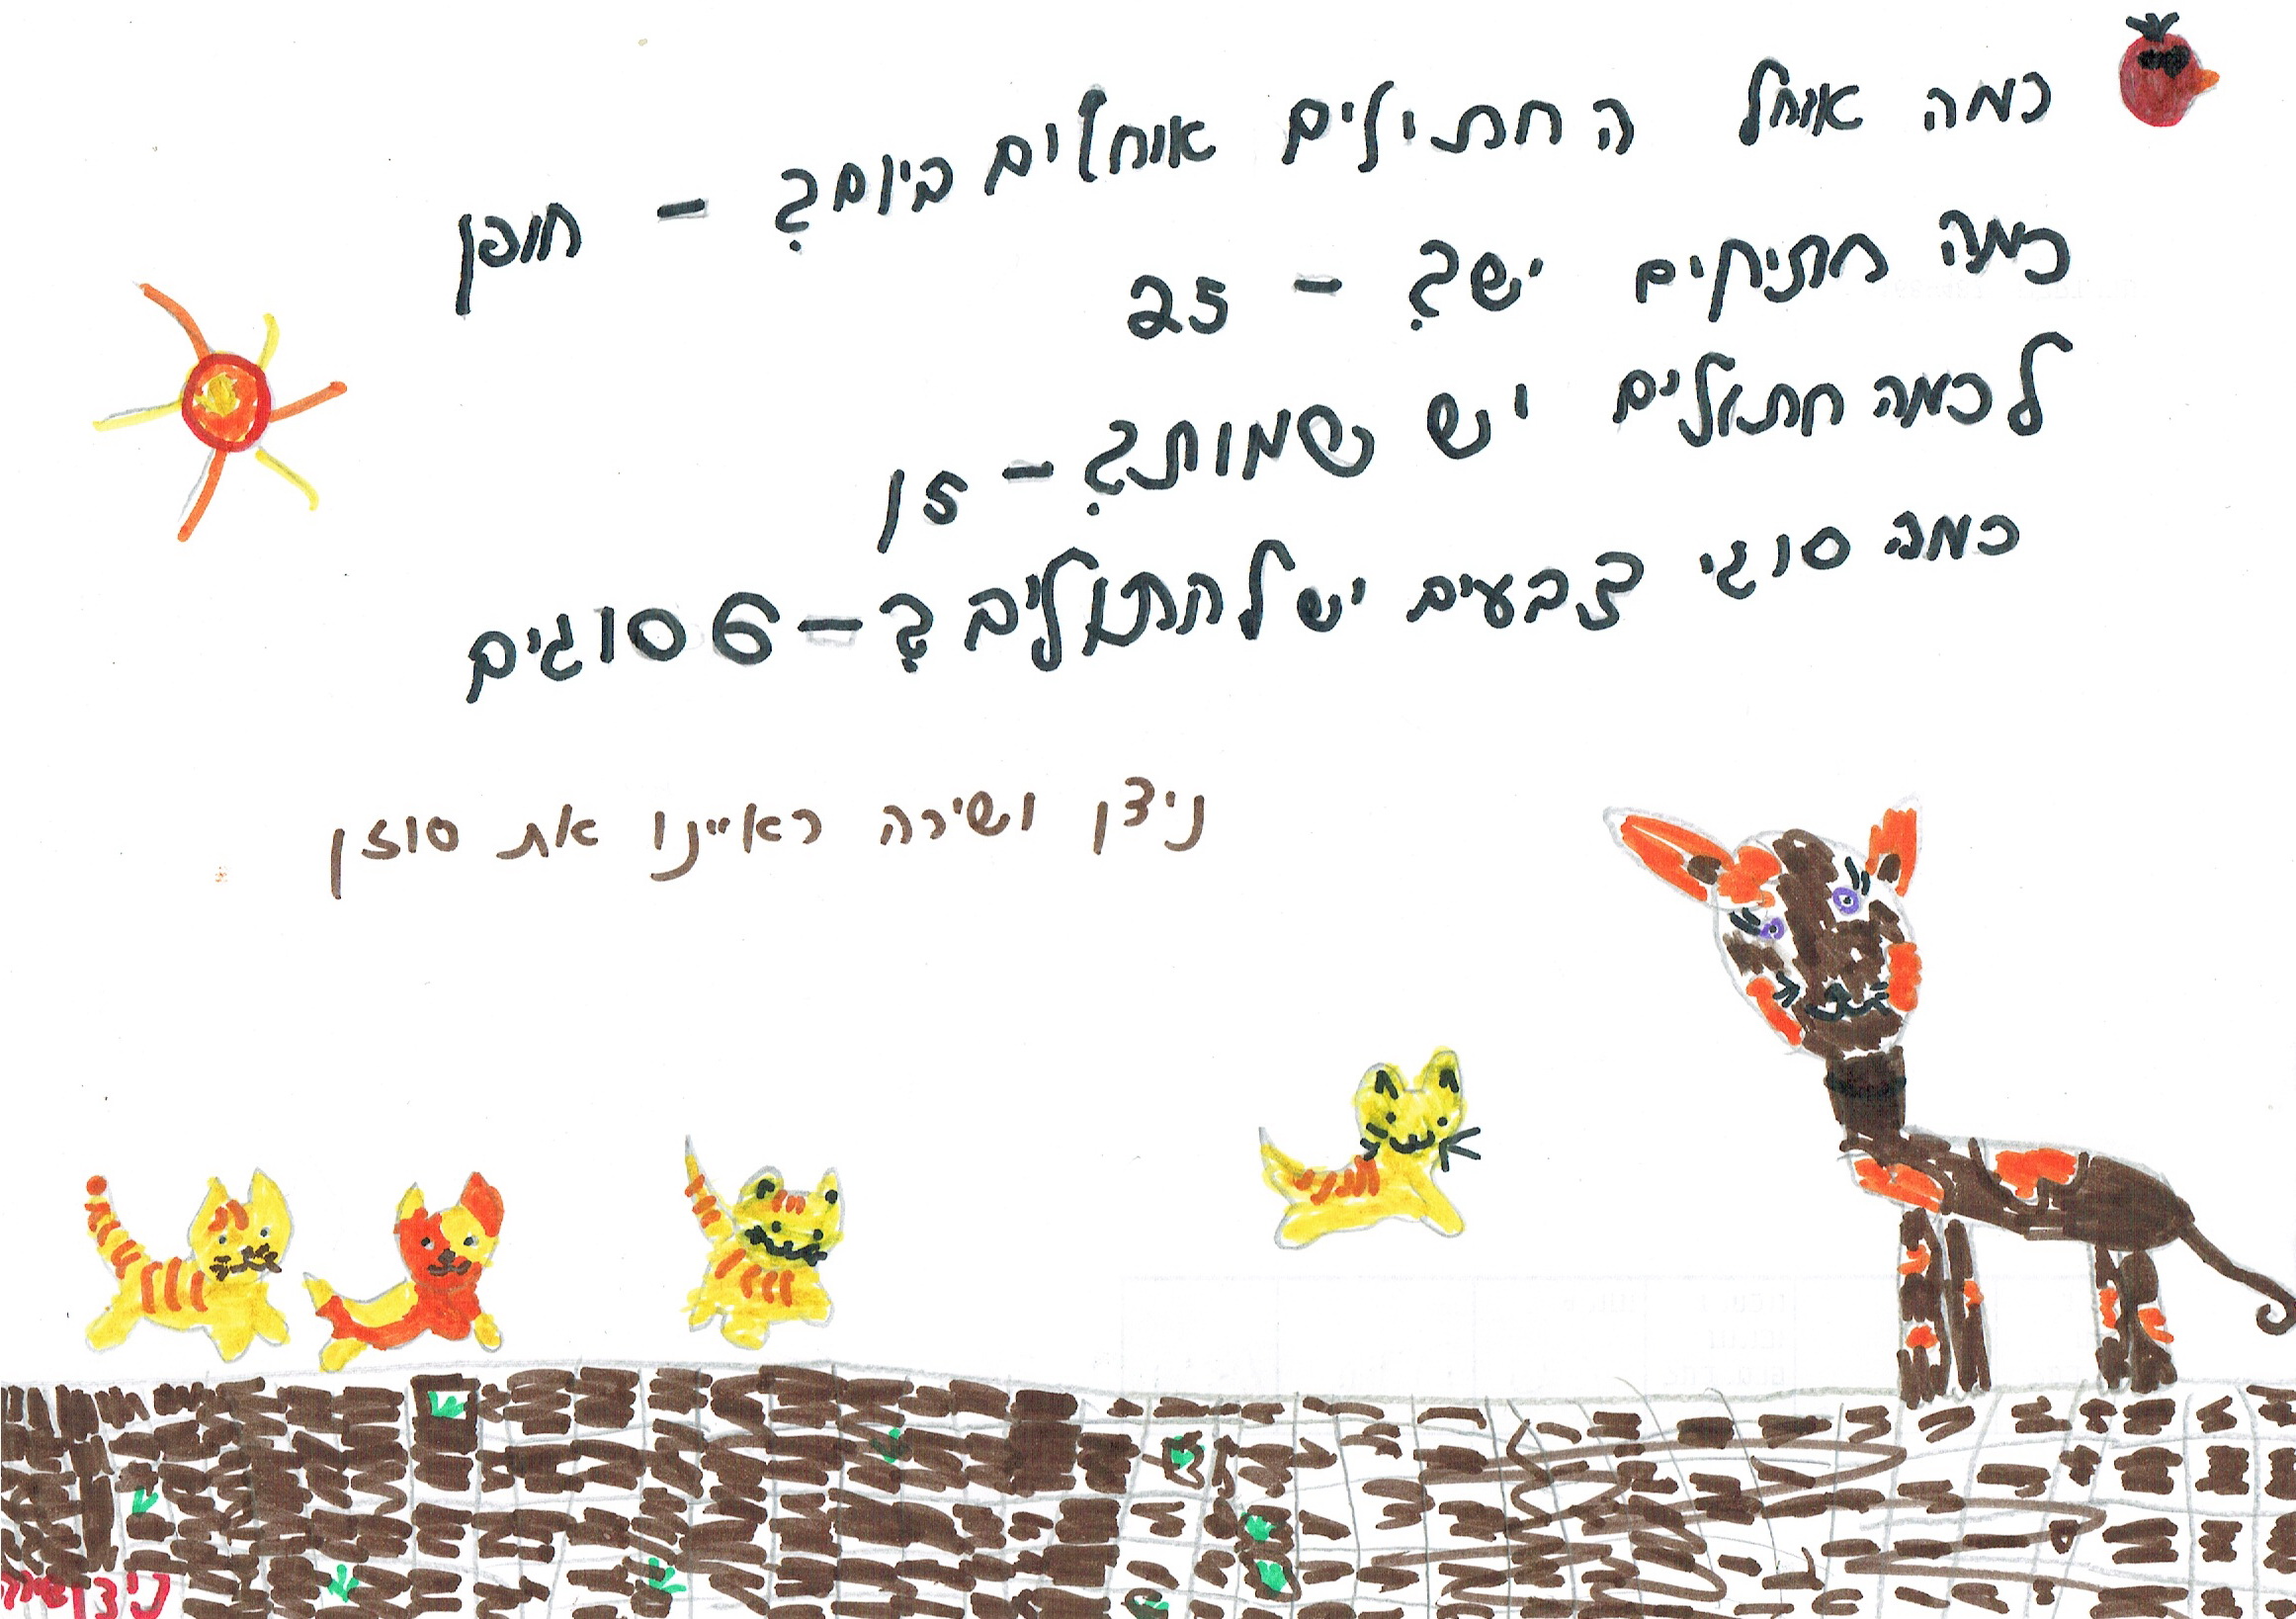 כמה אוחל החתילים אוחלים ביום? - חופן
כמה חתיקים יש? - 25
לכמה חתולים יש שמות? - 15
כמה סוגי צבעים יש לחתולים? - 6 סוגים
ניצן ושירה ראיינו את סוזן
ניצן שירה